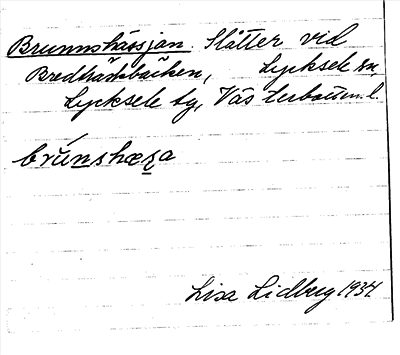 Brunnshässjan Slåtter vid
Bredträskbäcken, Lycksele sn,
Lycksele tg, Västerbotten. l.
brunshæʂa
Lisa Lidberg 1934